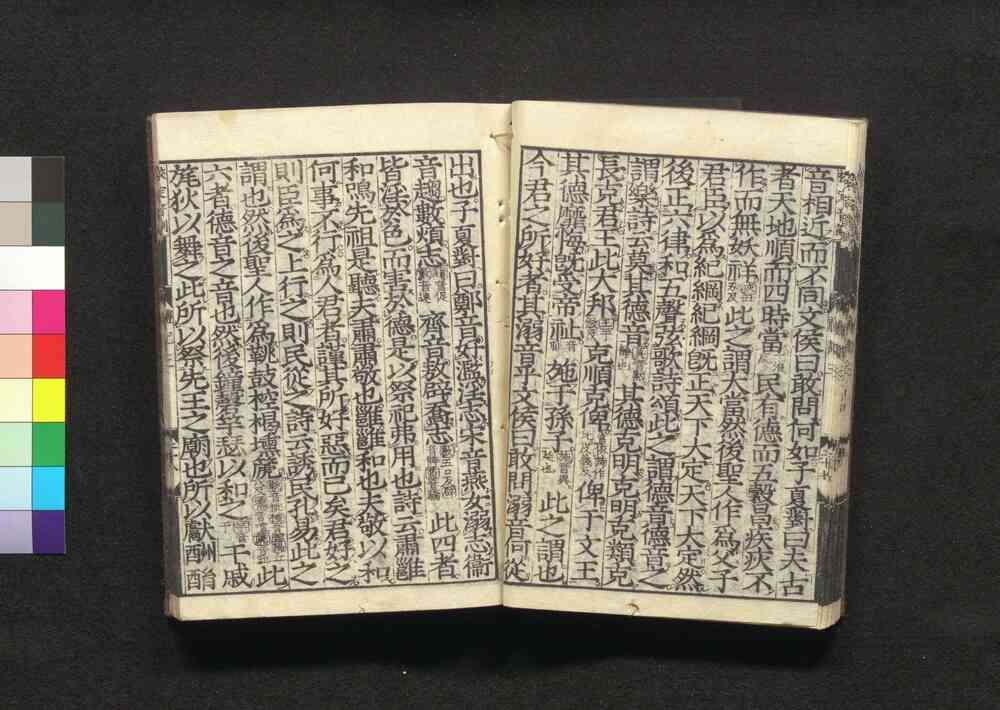 音相近而不同文侯曰敢問何如子夏對曰夫古
者天地順而四時當民有德而五穀昌疾疢不
作而無妖祥此之謂大當然後聖人作爲父子
君臣以爲紀綱紀綱旣正天下大定天下大定然
後正六律和五聲弦歌詩頌此之謂德音德音之
謂樂詩云莫其德音其德克明克明克類克
長克君王此大邦克順克俾俾于文王
其德靡悔旣受帝祉施于孫子此之謂也
今君之所好者其溺音乎文侯曰敢問溺音何從
出也子夏對曰鄭音好濫淫志宋音燕女溺志衞
音趨數煩志齊音敖辟喬志此四者
皆淫於色而害於德是以祭祀弗用也詩云肅雝
和鳴先祖是聽夫肅肅敬也雝雝和也夫敬以和
何事不行爲人君者謹其所好惡而已矣君好之
則臣爲之上行之則民從之詩云誘民孔易此之
謂也然後聖人作爲鞉鼓椌楬壎篪此
六者德音之音也然後鐘磬竽瑟以和之干戚
旄狄以舞之此所以祭先王之廟也所以獻酬酳